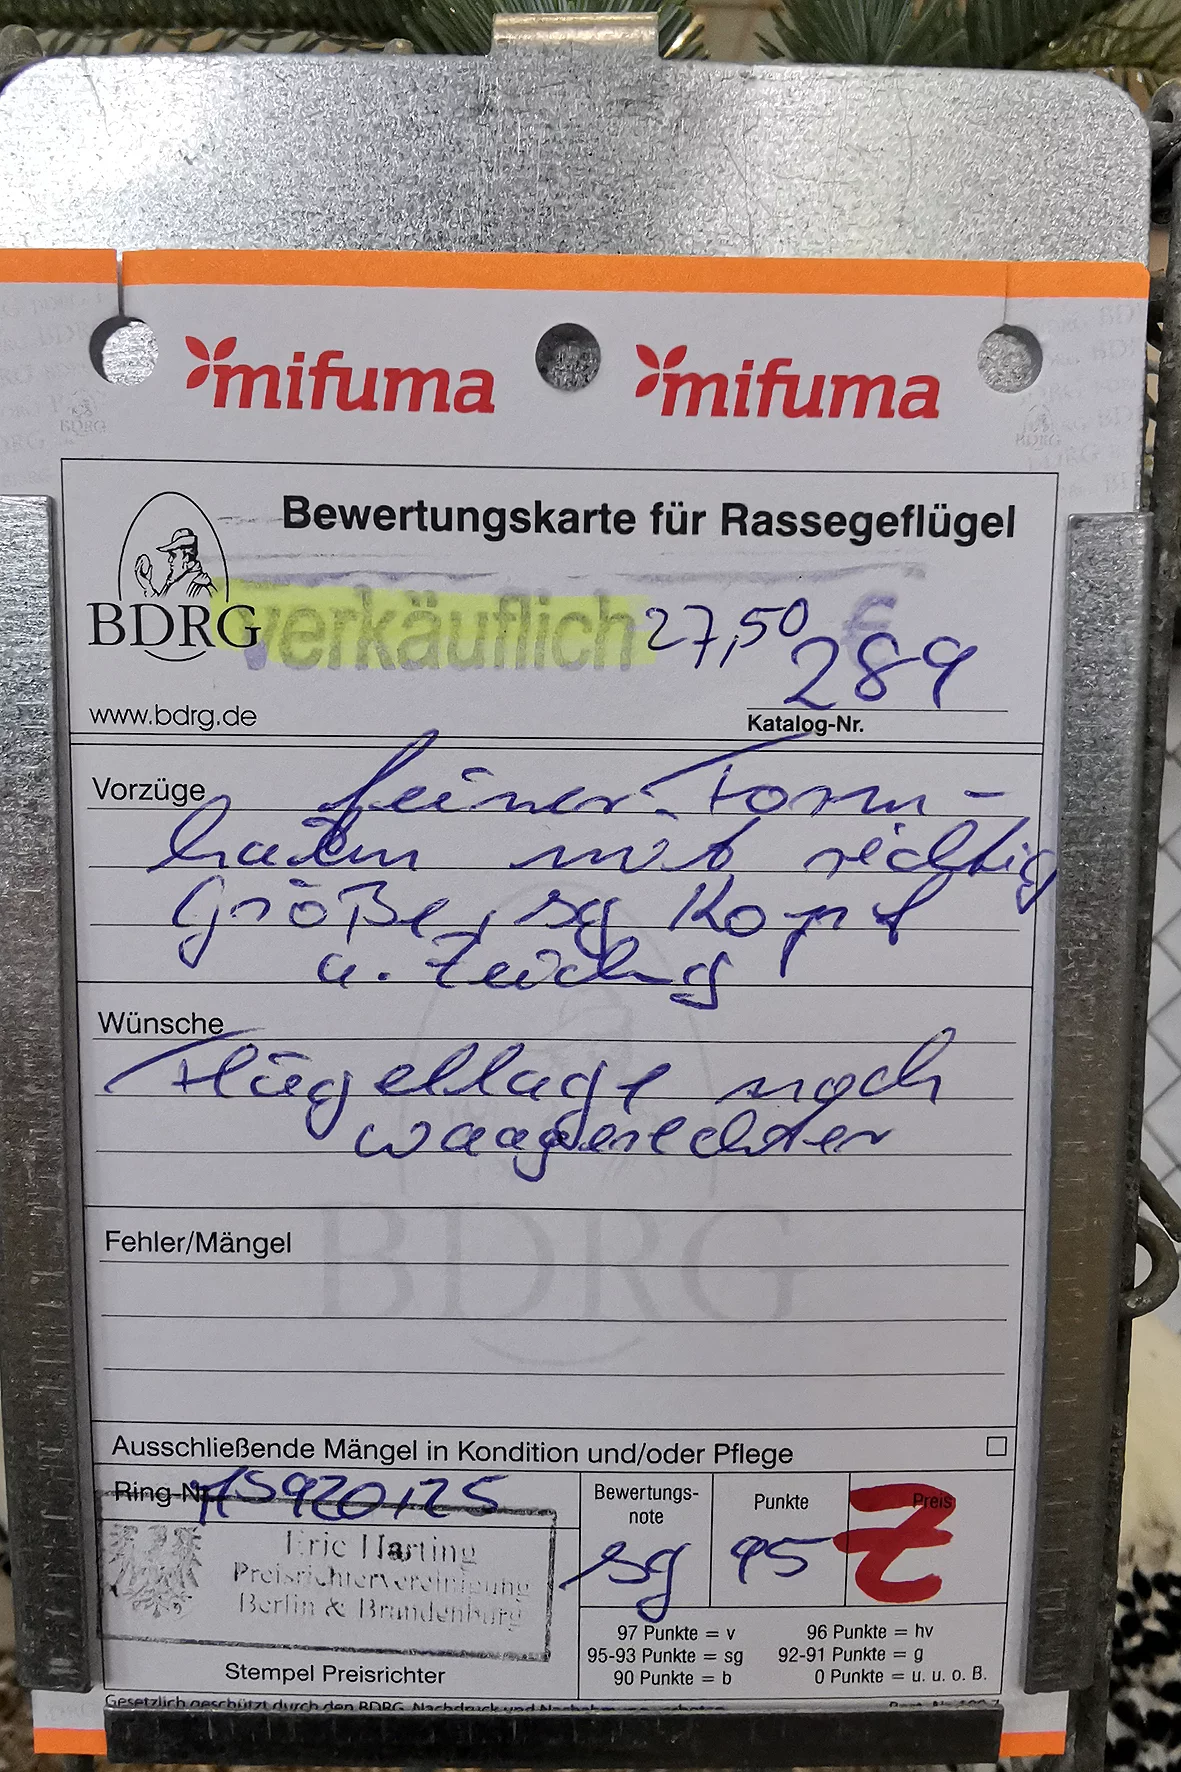 mifuma mifuma
Bewertungskarte für Rassegeflügel
BDRG
verkäuflich 27,50 €
289
www.bdrg.de
Katalog-Nr.
Vorzüge feiner Form-
hahn mit richtig
Größe, sg Kopf
u. Zeichg
Wünsche
Flügellage noch
waagerechter
BDRG
Fehler/Mängel
Ausschließende Mängel in Kondition und/oder Pflege
Ring-Nr.
Bewertungs-
note
Punkte
Preis
sg
95
Z
Eric Harting
Preisrichtervereinigung
Berlin & Brandenburg
Stempel Preisrichter
97 Punkte = v 96 Punkte = hv
95-93 Punkte = sg 92-91 Punkte = g
90 Punkte = b 0 Punkte = u. u. o. B.
Gesetzlich geschützt durch den BDRG. Nachdruck und